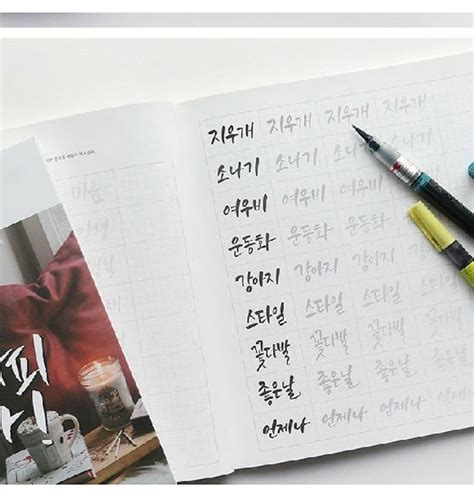 마음
지우개 지우개 지우개 지우개
소나기 소나기 소나기
여우비 여우비 여우비
운동화 운동화 운동화
강아지 강아지 강아지 강아지
스타일 스타일 스타일 스타일
꽃다발 꽃다발 꽃다발 꽃다발
좋은날 좋은날 좋은날 좋은날
언제나 언제나 언제나 언제나